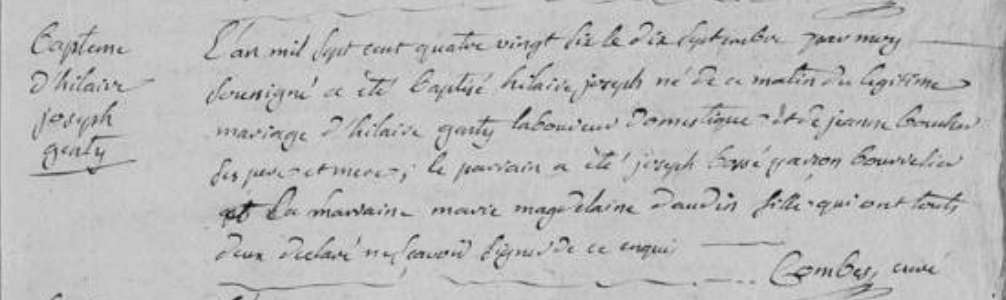 Capteme
d'hilaire
joseph
genty
L'an mil sept cent quatre vingt six le dix septembre par moy
soussigné a été baptisé hilaire joseph né de ce matin du legitime
mariage d'hilaire genty laboureur domestique et de jeanne
ses pere et mere; le parrain a été joseph garçon bourrelier
et La marraine marie magdelaine daudin fille qui ont touts
deux declaré ne sçavoir signer de ce enquis
Combes, curé